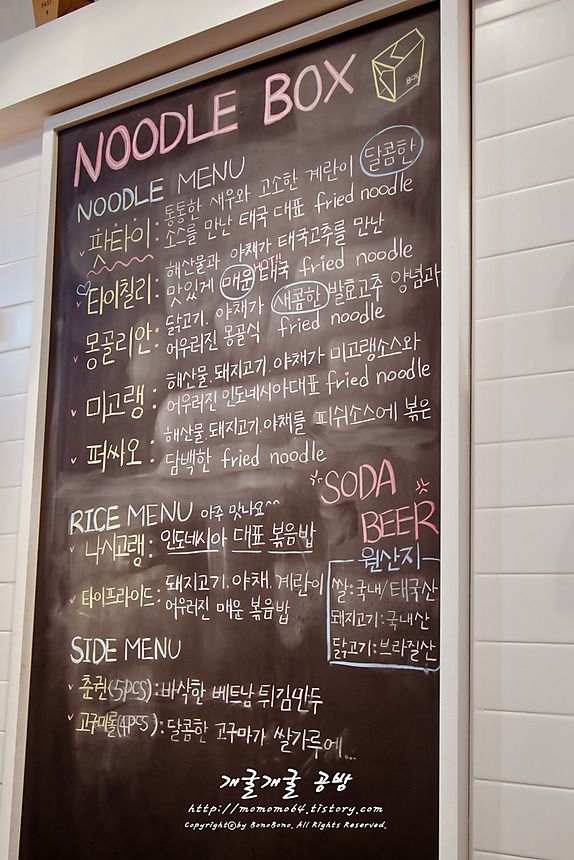 NOODLE BOX
BOX
NOODLE MENU
팟타이 : 통통한 새우와 고소한 계란이 달콤한
소스를 만난 태국 대표 fried noodle
타이칠리 : 해산물과 야채가 태국고추를 만난
맛있게 매운 HOT!! 태국 fried noodle
몽골리안 : 닭고기. 야채가 새콤한 발효고추 양념과
어우러진 몽골식 fried noodle
미고랭 : 해산물.돼지고기.야채가 미고랭소스와
어우러진 인도네시아대표 fried noodle
퍼싸오 : 해산물.돼지고기.야채를 피쉬소스에 볶은
담백한 fried noodle
SODA
BEER
RICE MENU 아주 맛나요^^
나시고랭 : 인도네시아 대표 볶음밥
타이프라이드 : 돼지고기.야채.계란이
어우러진 매운 볶음밥
원산지
쌀:국내/태국산
돼지고기:국내산
닭고기:브라질산
SIDE MENU
춘권(5pcs):바삭한 베트남 튀김만두
고구마롤(4pcs):달콤한 고구마가 쌀가루에...
개굴개굴 공방
http://momomo64.tistory.com
Copyright©by BonoBono. All Rights Reserved.